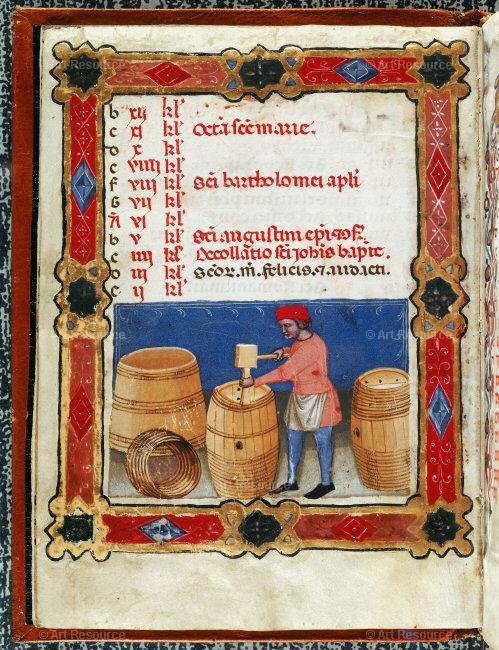 © Art Resource © Art Resource
b xij kl'
c xj kl' Octa sce marie.
d x kl'
e viiij kl'
f viij kl' Sci bartholomei apli
G vij kl'
A vj kl'
b v kl' Sci augustini epi
c iiij kl' Decollatio sci iohis bapte.
d iij kl' Scor. m. felicis 7 audacti.
e ij kl'
© Art Resource
© Art Resource © Art Resource